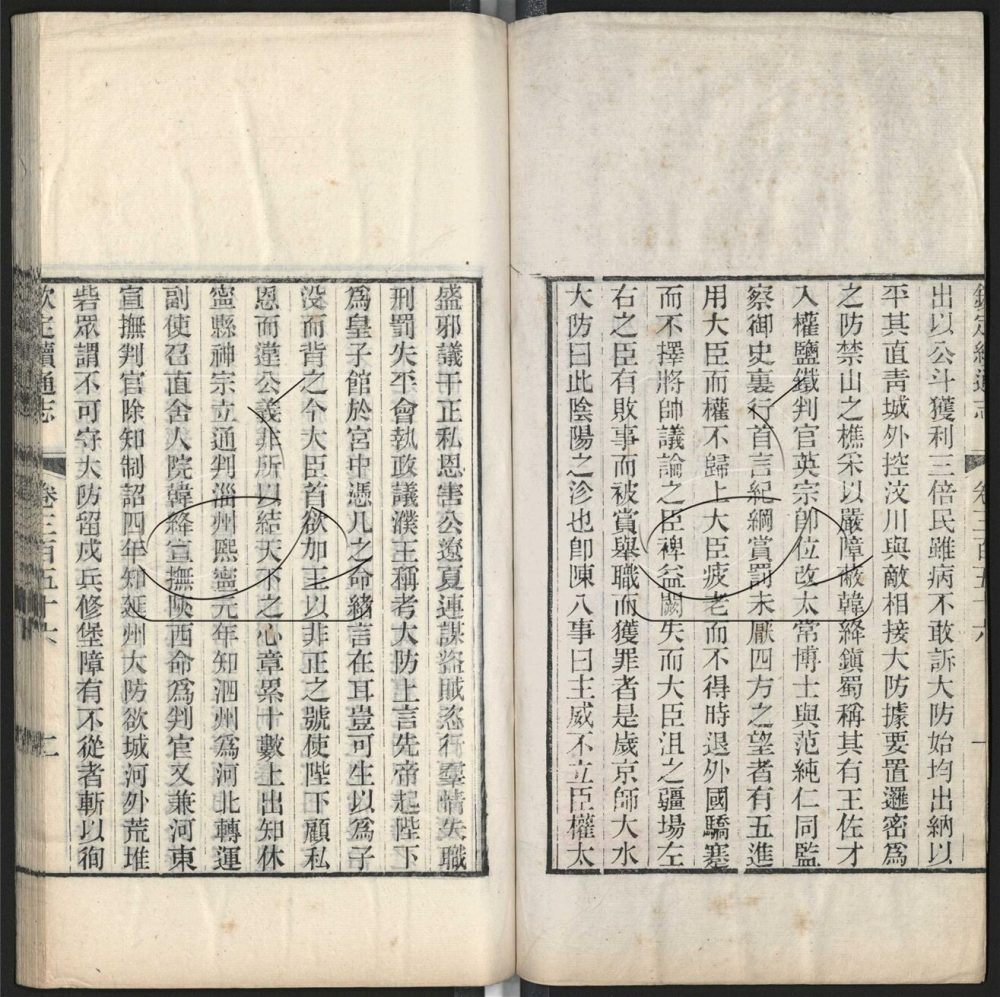 欽定續通志
卷三百五十六
一
出以公斗獲利三倍民雖病不敢訴大防始均出納以
平其直青城外控汶川與敵相接大防據要置邏密爲
之防禁山之樵采以嚴障蔽韓絳鎮蜀稱其有王佐才
入權鹽鐵判官英宗卽位改太常博士與范純仁同監
察御史裏行首言紀綱賞罰未厭四方之望者有五進
用大臣而權不歸上大臣疲老而不得時退外國驕蹇
而不擇將帥議論之臣裨益闕失而大臣沮之疆場左
右之臣有敗事而被賞舉職而獲罪者是歲京師大水
大防曰此陰陽之沴也卽陳八事曰主威不立臣權太
盛邪議干正私恩害公遼夏連謀盜賊恣行羣情失職
刑罰失平會執政議濮王稱考大防上言先帝起陛下
爲皇子館於宮中憑几之命緒言在耳豈可生以爲子
没而背之今大臣首欲加王以非正之號使陛下顧私
恩而違公義非所以結天下之心章累十數上出知休
寧縣神宗立通判淄州熙寧元年知泗州爲河北轉運
副使召直舍人院韓絳宣撫陝西命爲判官又兼河東
宣撫判官除知制誥四年知延州大防欲城河外荒堆
砦眾謂不可守大防留戍兵修堡障有不從者斬以徇
欽定續通志
卷三百五十六
二